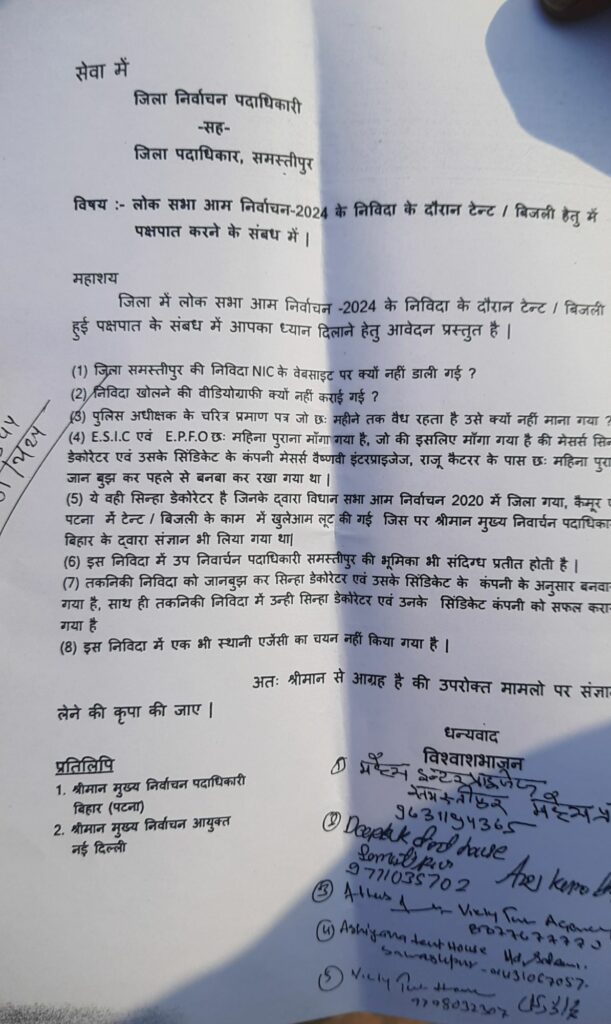 सेवा में
जिला निर्वाचन पदाधिकारी
-सह-
जिला पदाधिकार, समस्तीपुर
विषय :- लोक सभा आम निर्वाचन-2024 के निविदा के दौरान टेन्ट / बिजली हेतु में
पक्षपात करने के संबध में |
महाशय
जिला में लोक सभा आम निर्वाचन -2024 के निविदा के दौरान टेन्ट / बिजली
हुई पक्षपात के संबध में आपका ध्यान दिलाने हेतु आवेदन प्रस्तुत है |
(1) जिला समस्तीपुर की निविदा NIC के वेबसाइट पर क्यों नहीं डाली गई ?
(2) निविदा खोलने की वीडियोग्राफी क्यों नहीं कराई गई ?
(3) पुलिस अधीक्षक के चरित्र प्रमाण पत्र जो छः महीने तक वैध रहता है उसे क्यों नहीं माना गया ?
(4) E.S.I.C एवं E.P.F.O छः महिना पुराना माँगा गया है, जो की इसलिए माँगा गया है की मेसर्स सिन
डेकोरेटर एवं उसके सिंडिकेट के कंपनी मेसर्स वैष्णवी इंटरप्राइजेज, राजू कैटरर के पास छः महिना पुरा
जान बुझ कर पहले से बनबा कर रखा गया था |
(5) ये वही सिन्हा डेकोरेटर है जिनके द्वारा विधान सभा आम निर्वाचन 2020 में जिला गया, कैमूर ए
पटना में टेन्ट / बिजली के काम में खुलेआम लूट की गई जिस पर श्रीमान मुख्य निवार्चन पदाधिका
बिहार के द्वारा संज्ञान भी लिया गया था|
(6) इस निविदा में उप निवार्चन पदाधिकारी समस्तीपुर की भूमिका भी संदिग्ध प्रतीत होती है |
(7) तकनिकी निविदा को जानबुझ कर सिन्हा डेकोरेटर एवं उसके सिंडिकेट के कंपनी के अनुसार बनवा
गया है, साथ ही तकनिकी निविदा में उन्ही सिन्हा डेकोरेटर एवं उनके सिंडिकेट कंपनी को सफल करा
गया है
(8) इस निविदा में एक भी स्थानी एजेंसी का चयन नहीं किया गया है |
अतः श्रीमान से आग्रह है की उपरोक्त मामलो पर संज्ञा
लेने की कृपा की जाए |
धन्यवाद
विश्वाशभाजन
प्रतिलिपि
1. श्रीमान मुख्य निर्वाचन पदाधिकारी
बिहार (पटना)
2. श्रीमान मुख्य निर्वाचन आयुक्त
नई दिल्ली
1)
9631194365
2) Deepak food house
Samastipur
9771035702
3) Vicky Tent Agency
4) Ashiyana tent House Md.
Samastipur
5) Vicky Tent House
9798032307